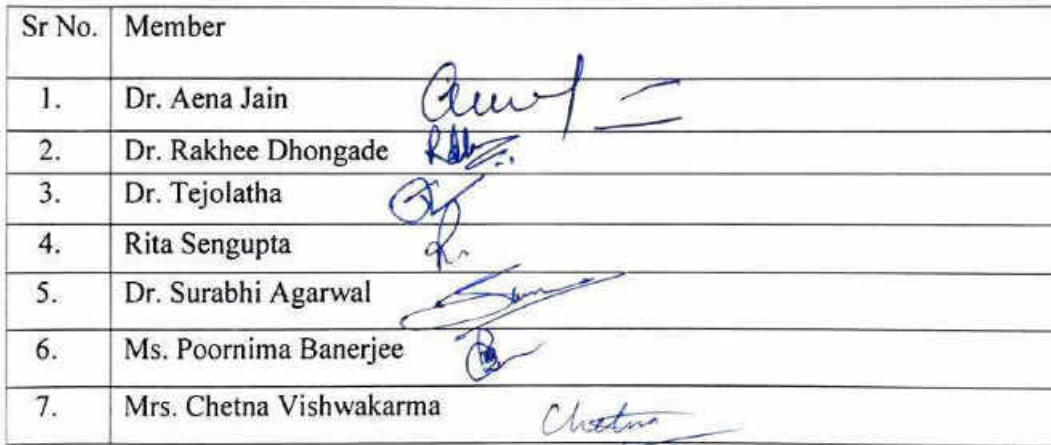 Sr No. Member
1. Dr. Aena Jain
2. Dr. Rakhee Dhongade
3. Dr. Tejolatha
4. Rita Sengupta
5. Dr. Surabhi Agarwal
6. Ms. Poornima Banerjee
7. Mrs. Chetna Vishwakarma Chetna